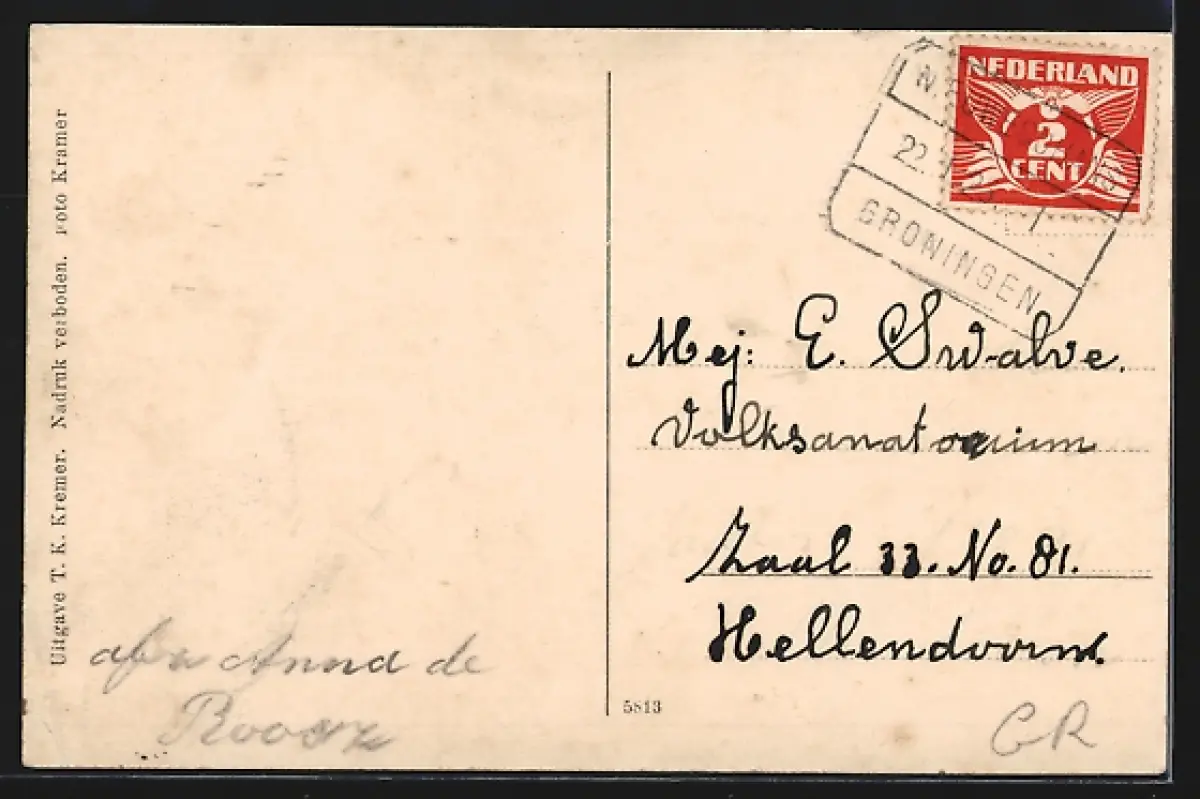 Uitgave T. K. Kremer. Nadruk verboden. Foto Kramer
NEDERLAND
2
CENT
22.
GRONINGEN
Mej: E. Swalve.
Volksanatorium
Zaal 33. No. 81.
Hellendoorn.
Anna de
5813
GR